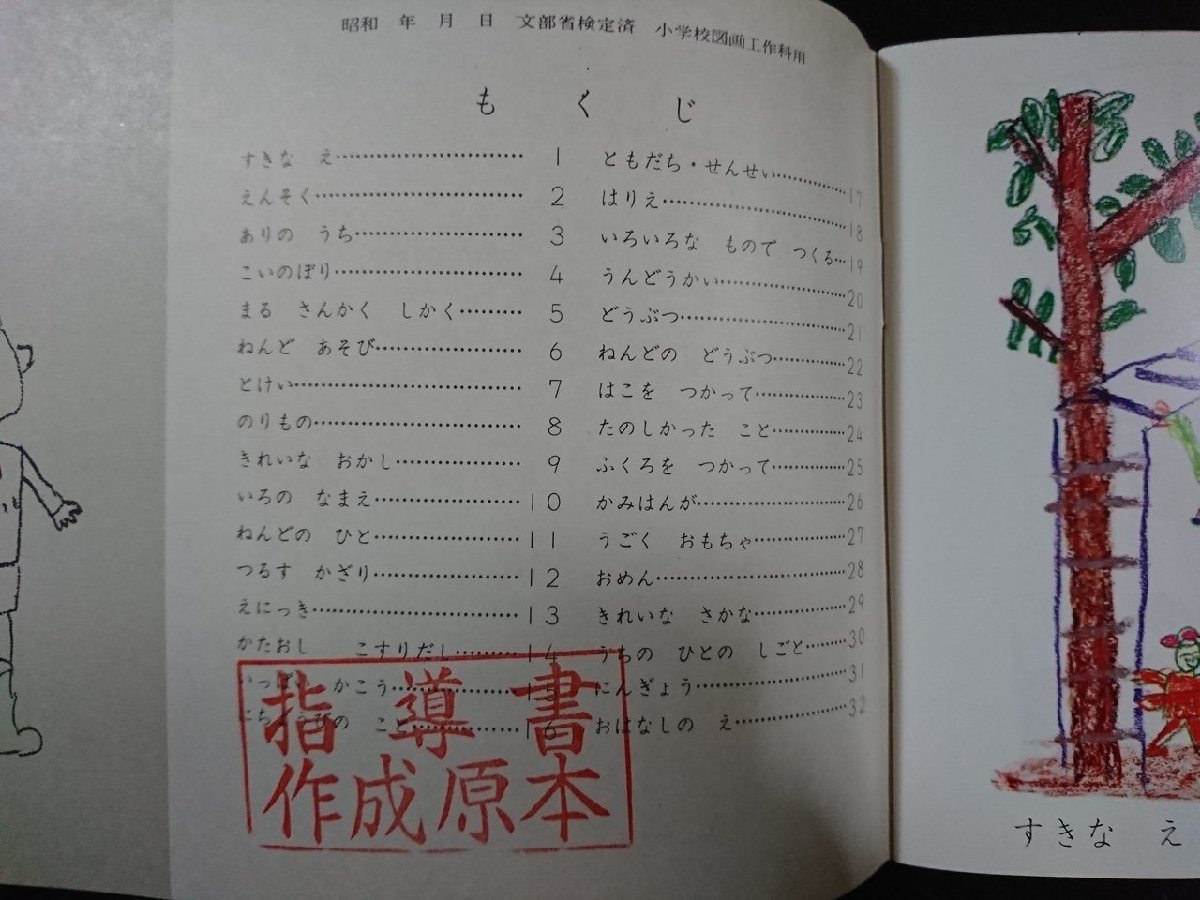 昭和　年　月　日　文部省検定済　小学校図画工作科用
もくじ
すきな　え……………………… 1
えんそく……………………… 2
ありの　うち……………………… 3
こいのぼり……………………… 4
まる　さんかく　しかく……… 5
ねんど　あそび……………………… 6
とけい……………………… 7
のりもの……………………… 8
きれいな　おかし……………………… 9
いろの　なまえ……………………… 10
ねんどの　ひと……………………… 11
つるす　かざり……………………… 12
えにっき……………………… 13
かたおし　こすりだし……… 14
かこう……………………… 15
こと……………………… 16
ともだち・せんせい……………………… 17
はりえ……………………… 18
いろいろな　もので　つくる… 19
うんどうかい……………………… 20
どうぶつ……………………… 21
ねんどの　どうぶつ……………………… 22
はこを　つかって……………………… 23
たのしかった　こと……………………… 24
ふくろを　つかって……………………… 25
かみはんが……………………… 26
うごく　おもちゃ……………………… 27
おめん……………………… 28
きれいな　さかな……………………… 29
うちの　ひとの　しごと……… 30
にんぎょう……………………… 31
おはなしの　え……………………… 32
指導書
作成原本
すきな　え